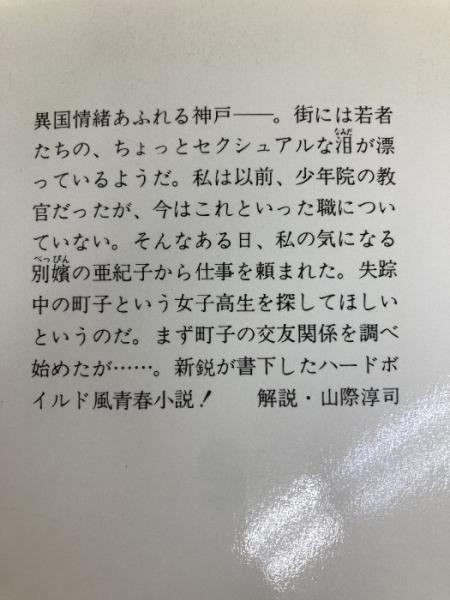 異国情緒あふれる神戸――。街には若者
たちの、ちょっとセクシュアルな泪が漂
っているようだ。私は以前、少年院の教
官だったが、今はこれといった職につい
ていない。そんなある日、私の気になる
別嬪の亜紀子から仕事を頼まれた。失踪
中の町子という女子高生を探してほしい
というのだ。まず町子の交友関係を調べ
始めたが……。新鋭が書下したハードボ
イルド風青春小説！　解説・山際淳司